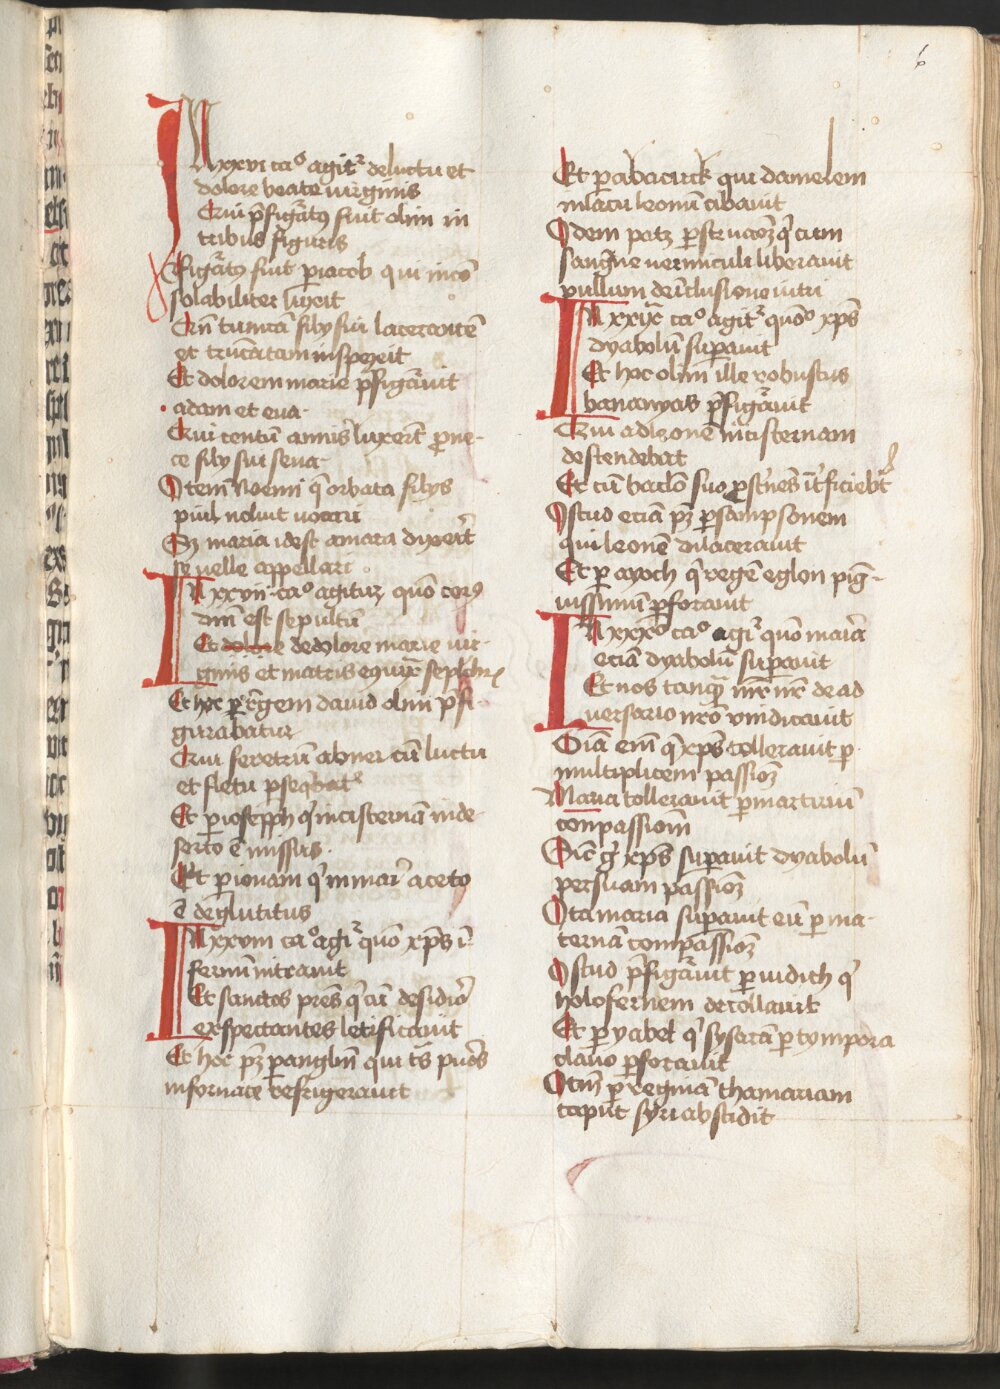 6
IN xxvi ca° agit᷑ de luctu et
dolore beate virginis
Qui p̄figᷓtꝰ fuit olim in
tribus figuris
P̄figᷓtꝰ fuit ꝑ iacob qui incō
solabiliter luxit
Cū tunicā filij sui laceratā
et truncatam inspexit
Et dolorem marie p̄figᷓuit
adam et eua
Qui centū annis luxerūt ꝓ ne-
ce filij sui
Item Noemi q̄ orbata filijs
noluit vocari
Sꝫ maria idest amara dixit
se velle appellari
IN xxvii ca° agitur quō corpꝰ
dn̄i est sepultū
Et dolore de dolore marie vir-
ginis et matris
Et hoc ꝑ regem dauid olim p̄fi-
gurabatur
Qui feretrū abner cū luctu
et fletu ꝓseqᷓbat᷑
Et ꝑ ioseph qⁱ in cisternā in de-
serto ē missus
Et ꝑ ionam qⁱ in mari a ceto
ē deglutitus
IN xxviii ca° agit᷑ quō xp̄s ī
fernū intrauit
Et sanctos pr̄es qⁱ eū desid̾io
exspectantes letificauit
Et hoc pꝫ ꝑ anglm̄ qui t̄s pu̾os
in fornace refrigerauit
Et ꝑ abacuck qui danielem
in lacu leonū cibauit
Idem patꝫ ꝑ strucōeꝫ qⁱ cum
sangⁱne vermiculi liberauit
pullum de īclusione vitri
IN xxix ca° agit᷑ quō xp̄s
dyabolū suꝑauit
Et hoc olim ille robustus
bananyas p̄figᷓuit
Qui ad leonē in cisternam
descendebat
Et cū baclō suo ꝓst̾nēs īt̾ficiebat
Istud eciā pꝫ ꝑ sampsonem
qui leonē dilacerauit
Et ꝑ ayoth qⁱ regē eglon pīg-
uissimū ꝑforauit
IN xxx° ca° agit᷑ quō maria
eciā dyabolū suꝑauit
Et nos tanqᷓ de ad
uersario nr̄o vindicauit
Oīa em̄ q̄ xp̄s tollerauit ꝑ
multiplicem passionē
Maria tollerauit ꝑ martiriū
conpassionis
Sic g° xp̄s suꝑauit dyabolū
per suam passionē
Ita maria suꝑauit eū ꝑ ma-
ternā compassionē
Istud p̄figᷓuit ꝑ iudith q̄
holofernem decollauit
Et ꝑ yabel q̄ sysarā ꝑ tympora
clauo ꝑforauit
Itē ꝑ reginā thamariam
caput syri abscidit